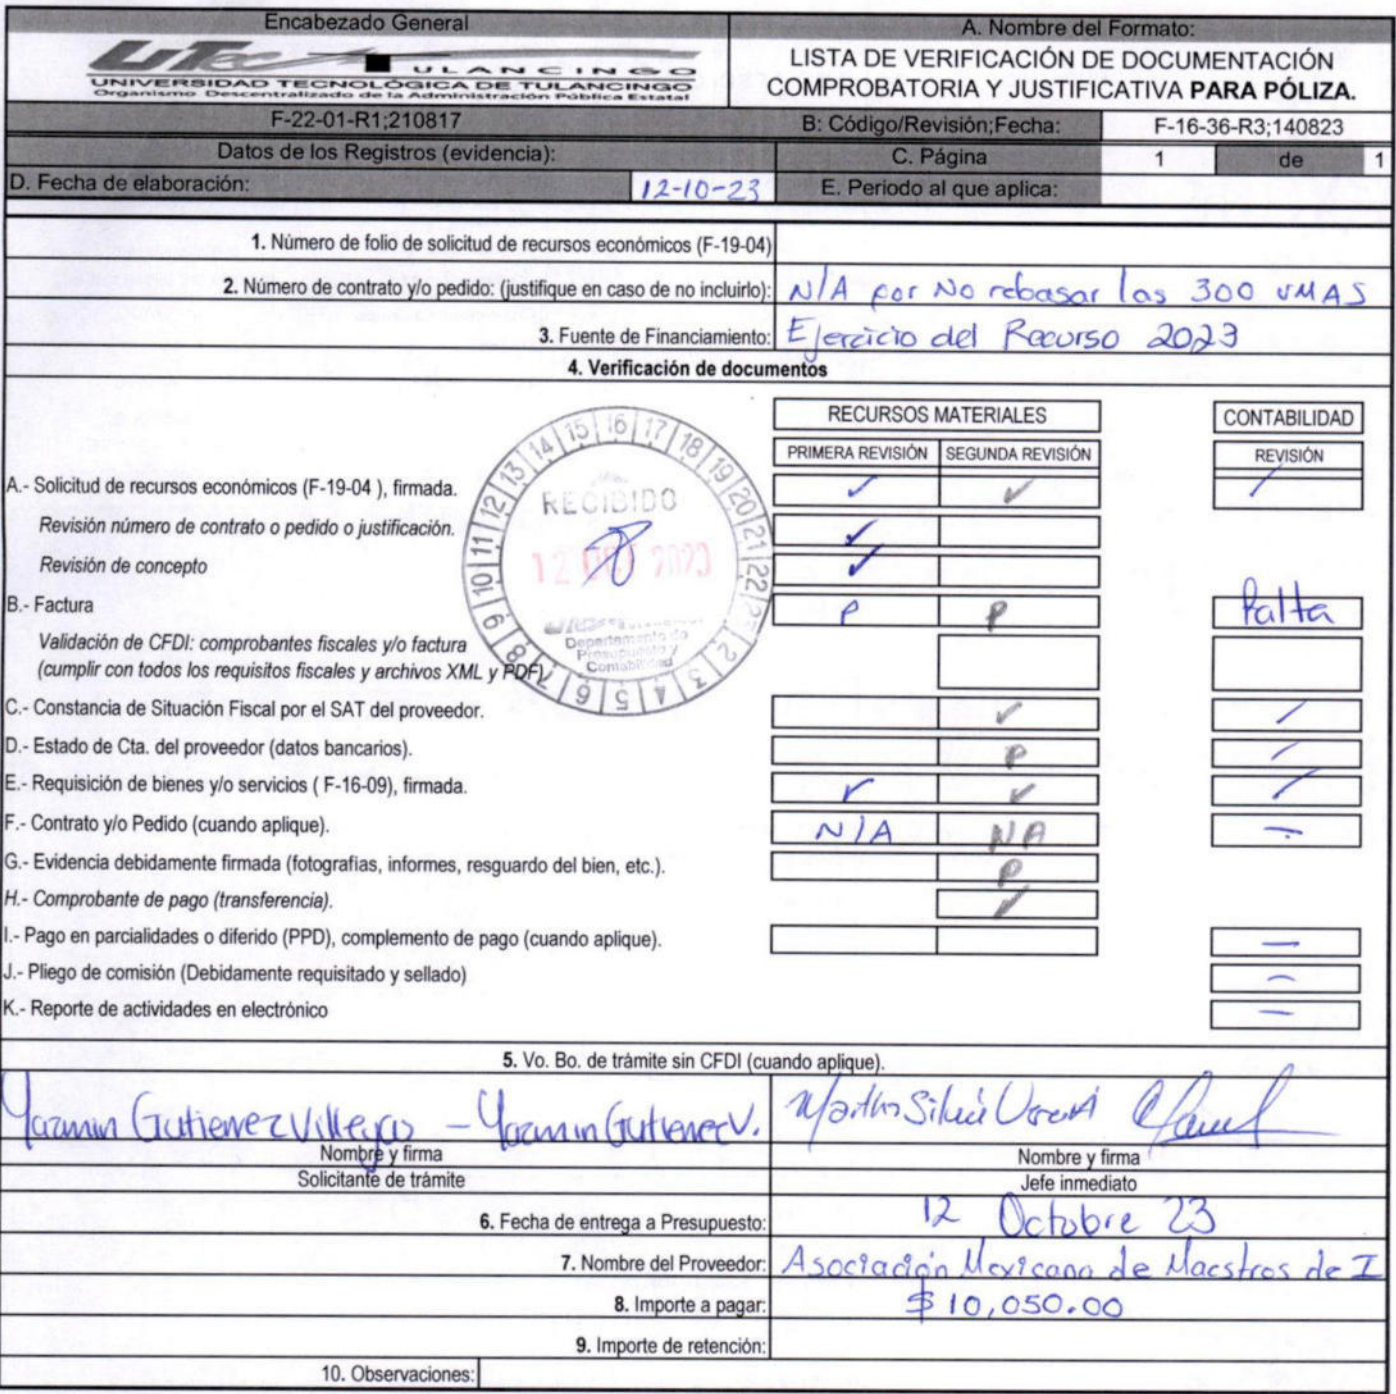 Encabezado General
A. Nombre del Formato:
UTec TULANCINGO
UNIVERSIDAD TECNOLÓGICA DE TULANCINGO
Organismo Descentralizado de la Administración Pública Estatal
LISTA DE VERIFICACIÓN DE DOCUMENTACIÓN
COMPROBATORIA Y JUSTIFICATIVA PARA PÓLIZA.
F-22-01-R1;210817
B: Código/Revisión;Fecha:
F-16-36-R3;140823
Datos de los Registros (evidencia):
C. Página
1 de 1
D. Fecha de elaboración: 12-10-23
E. Periodo al que aplica:
1. Número de folio de solicitud de recursos económicos (F-19-04)
2. Número de contrato y/o pedido: (justifique en caso de no incluirlo): N/A por No rebasar las 300 UMAS
3. Fuente de Financiamiento: Ejercicio del Recurso 2023
4. Verificación de documentos
RECURSOS MATERIALES
CONTABILIDAD
PRIMERA REVISIÓN SEGUNDA REVISIÓN
REVISIÓN
A.- Solicitud de recursos económicos (F-19-04 ), firmada. ✓ ✓ /
Revisión número de contrato o pedido o justificación. ✓
Revisión de concepto ✓
B.- Factura P P Falta
Validación de CFDI: comprobantes fiscales y/o factura
(cumplir con todos los requisitos fiscales y archivos XML y PDF)
C.- Constancia de Situación Fiscal por el SAT del proveedor. ✓ /
D.- Estado de Cta. del proveedor (datos bancarios). P /
E.- Requisición de bienes y/o servicios ( F-16-09), firmada. ✓ ✓ /
F.- Contrato y/o Pedido (cuando aplique). N/A NA -
G.- Evidencia debidamente firmada (fotografias, informes, resguardo del bien, etc.). P
H.- Comprobante de pago (transferencia). ✓
I.- Pago en parcialidades o diferido (PPD), complemento de pago (cuando aplique). -
J.- Pliego de comisión (Debidamente requisitado y sellado) -
K.- Reporte de actividades en electrónico -
1 2 3 4 5 6 7 8 9 10 11 12 13 14 15 16 17 18 19 20 21 22 23
RECIBIDO
12 OCT 2023
Departamento de
Presupuesto y
Contabilidad
5. Vo. Bo. de trámite sin CFDI (cuando aplique).
Yazmin Gutierrez Villegas - Yazmin Gutierrez V.
Martha Silvia
Nombre y firma
Solicitante de trámite
Nombre y firma
Jefe inmediato
6. Fecha de entrega a Presupuesto: 12 Octubre 23
7. Nombre del Proveedor: Asociación Mexicana de Maestros de I
8. Importe a pagar: $10,050.00
9. Importe de retención:
10. Observaciones: